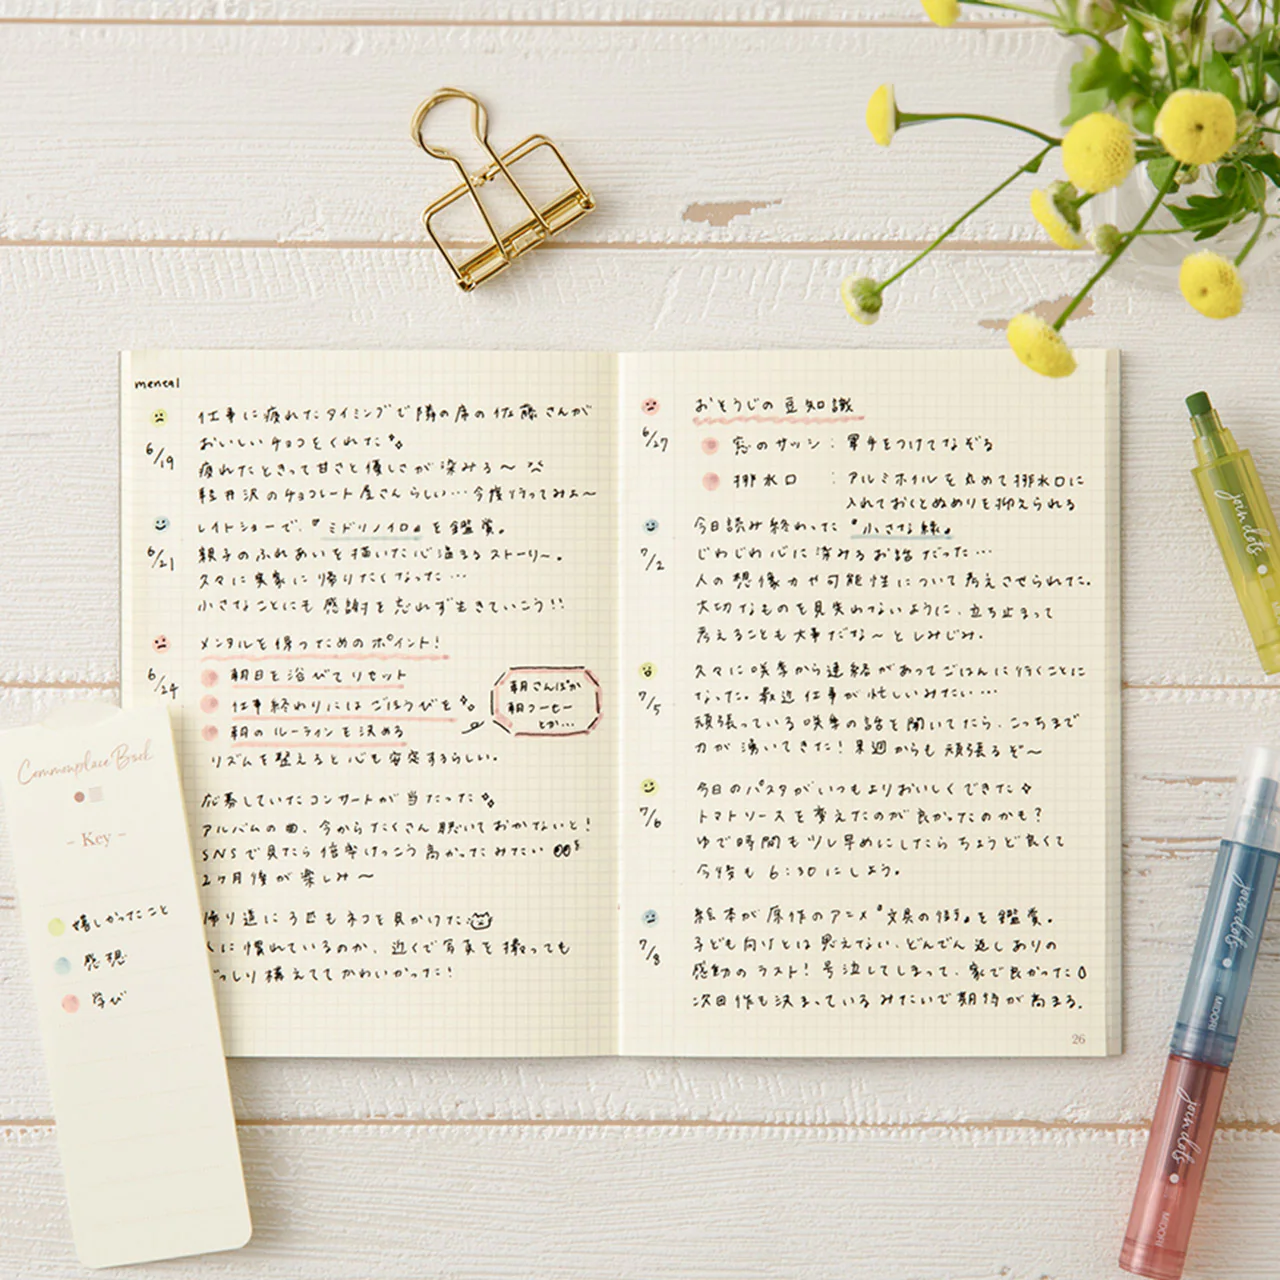 mental
仕事に疲れたタイミングで隣の席の佐藤さんが
6/19
おいしいチョコをくれた
疲れたときって甘さと優しさが染みる〜
軽井沢のチョコレート屋さんらしい…今度行ってみよ〜
レイトショーで、『ミドリノイロ』を鑑賞。
6/21
親子のふれあいを描いた心温まるストーリー。
久々に実家に帰りたくなった…
小さなことにも感謝を忘れず生きていこう!!
メンタルを保つためのポイント!
6/24
朝日を浴びてリセット
仕事終わりにはごほうびを
朝のルーティンを決める
朝さんぽか
朝コーヒー
とか…
リズムを整えると心も安定するらしい。
応募していたコンサートが当たった
アルバムの曲、今からたくさん聴いておかないと!
SNSで見たら倍率けっこう高かったみたい
2ヶ月後が楽しみ〜
帰り道に3匹もネコを見かけた
に慣れているのか、近くで写真を撮っても
っしり構えててかわいかった!
おそうじの豆知識
6/27
窓のサッシ:軍手をつけてなぞる
排水口:アルミホイルを丸めて排水口に
入れておくとぬめりを抑えられる
今日読み終わった『小さな縁』
7/2
じわじわ心に染みるお話だった…
人の想像力や可能性について考えさせられた。
大切なものを見失わないように、立ち止まって
考えることも大事だな〜としみじみ。
久々に咲季から連絡があってごはんに行くことに
7/5
なった。最近仕事が忙しいみたい…
頑張っている咲季の話を聞いてたら、こっちまで
力が湧いてきた!来週からも頑張るぞ〜
今日のパスタがいつもよりおいしくできた
7/6
トマトソースを変えたのが良かったのかも?
ゆで時間も少し早めにしたらちょうど良くて
今後も6:30にしよう。
絵本が原作のアニメ『文具の街』を鑑賞。
7/8
子ども向けとは思えない、どんでん返しありの
感動のラスト!号泣してしまって、家で良かった
次回作も決まっているみたいで期待が高まる。
26
Commonplace Book
- Key -
嬉しかったこと
感想
学び
join dots
join dots
MIDORI
join dots
MIDORI